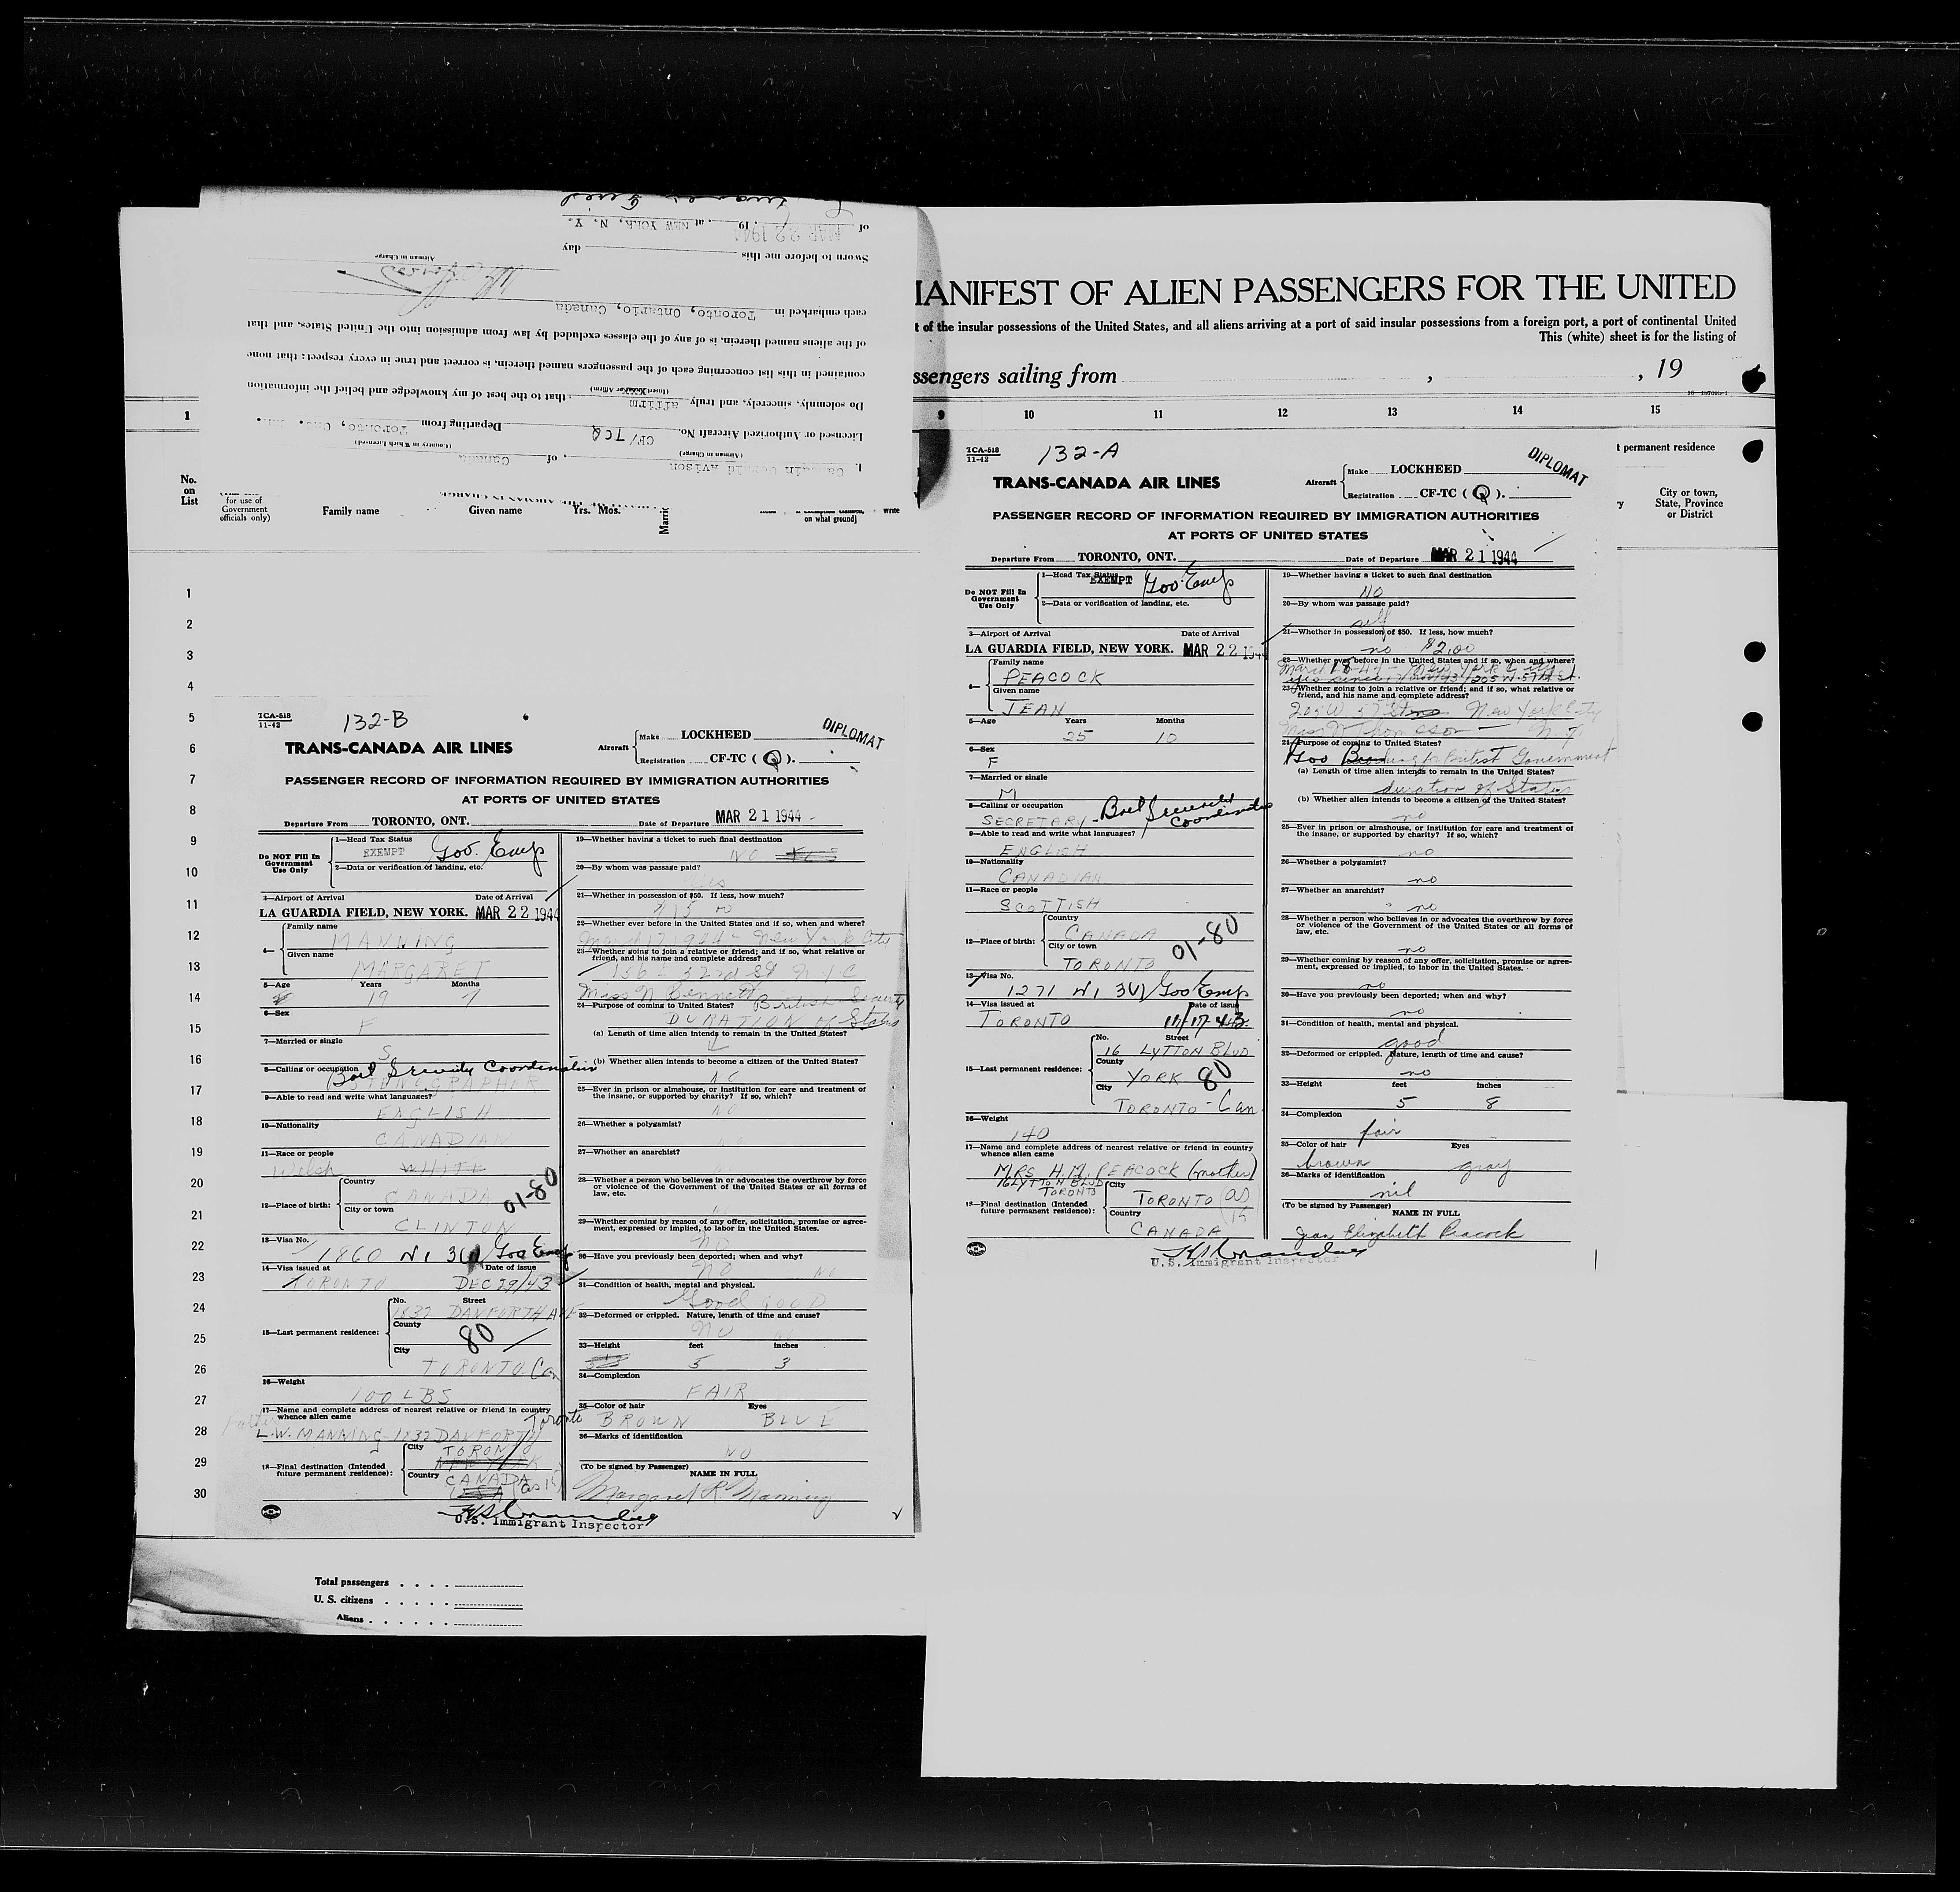 MANIFEST OF ALIEN PASSENGERS FOR THE UNITED
t of the insular possessions of the United States, and all aliens arriving at a port of said insular possessions from a foreign port, a port of continental United
This (white) sheet is for the listing of
ssengers sailing from , , 19
1 9 10 11 12 13 14 15
t permanent residence
City or town,
State, Province
or District
No.
on
List
for use of
Government
officials only)
Family name Given name Yrs. Mos.
on what ground]
I, Captain Donald Avison, of Canada
(Airman in Charge) (Country in Which Licensed)
Licensed or Authorized Aircraft No. CF/TCQ Departing from Toronto, Ont.
Do solemnly, sincerely, and truly affirm, that to the best of my knowledge and belief the information
contained in this list concerning each of the passengers named therein, is correct and true in every respect: that none
of the aliens named therein, is of any of the classes excluded by law from admission into the United States, and that
each embarked in Toronto, Ontario, Canada
Airman in Charge
Sworn to before me this day
of MAR 22 1944, 19 , at NEW YORK, N. Y.
1
2
3
4
5
6
7
8
9
10
11
12
13
14
15
16
17
18
19
20
21
22
23
24
25
26
27
28
29
30
TCA-518
11-42
132-B
DIPLOMAT
TRANS-CANADA AIR LINES
Aircraft Make LOCKHEED
Registration CF-TC ( Q ).
PASSENGER RECORD OF INFORMATION REQUIRED BY IMMIGRATION AUTHORITIES
AT PORTS OF UNITED STATES
Departure From TORONTO, ONT. Date of Departure MAR 21 1944
Do NOT Fill In
Government
Use Only
1—Head Tax Status
EXEMPT Gov. Emp
2—Data or verification of landing, etc.
3—Airport of Arrival Date of Arrival
LA GUARDIA FIELD, NEW YORK. MAR 22 1944
4— Family name
MANNING
Given name
MARGARET
5—Age Years Months
19 7
6—Sex
F
7—Married or single
S
8—Calling or occupation
STENOGRAPHER
9—Able to read and write what languages?
ENGLISH
10—Nationality
CANADIAN
11—Race or people
Welsh WHITE
12—Place of birth: Country
CANADA
City or town
CLINTON
01-80
13—Visa No.
1860 Gov Emp
14—Visa issued at Date of issue
TORONTO DEC 29/43
15—Last permanent residence: No. Street
1832 DANFORTH AVE
County
80
City
TORONTO. Can
16—Weight
100 LBS
17—Name and complete address of nearest relative or friend in country
whence alien came
Father Toronto
L.W. MANNING - 1832 DANFORTH
18—Final destination (Intended
future permanent residence): City
TORONTO
NEW YORK
Country
CANADA
USA (as 15)
19—Whether having a ticket to such final destination
NO
20—By whom was passage paid?
21—Whether in possession of $50. If less, how much?
22—Whether ever before in the United States and if so, when and where?
March 17 1944 - New York City
23—Whether going to join a relative or friend; and if so, what relative or
friend, and his name and complete address?
Miss N Bennett
24—Purpose of coming to United States?
DURATION of Status
(a) Length of time alien intends to remain in the United States?
(b) Whether alien intends to become a citizen of the United States?
NO
25—Ever in prison or almshouse, or institution for care and treatment of
the insane, or supported by charity? If so, which?
NO
26—Whether a polygamist?
27—Whether an anarchist?
28—Whether a person who believes in or advocates the overthrow by force
or violence of the Government of the United States or all forms of
law, etc.
29—Whether coming by reason of any offer, solicitation, promise or agree-
ment, expressed or implied, to labor in the United States.
NO
30—Have you previously been deported; when and why?
NO NO
31—Condition of health, mental and physical.
Good GOOD
32—Deformed or crippled. Nature, length of time and cause?
NO
33—Height feet inches
5 3
34—Complexion
FAIR
35—Color of hair Eyes
BROWN BLUE
36—Marks of identification
NO
(To be signed by Passenger) NAME IN FULL
Margaret R Manning
U.S. Immigrant Inspector
Total passengers
U. S. citizens
Aliens
TCA-518
11-42
132-A
DIPLOMAT
TRANS-CANADA AIR LINES
Aircraft Make LOCKHEED
Registration CF-TC ( Q ).
PASSENGER RECORD OF INFORMATION REQUIRED BY IMMIGRATION AUTHORITIES
AT PORTS OF UNITED STATES
Departure From TORONTO, ONT. Date of Departure MAR 21 1944
Do NOT Fill In
Government
Use Only
1—Head Tax Status
EXEMPT Gov. Emp
2—Data or verification of landing, etc.
3—Airport of Arrival Date of Arrival
LA GUARDIA FIELD, NEW YORK. MAR 22 1944
4— Family name
PEACOCK
Given name
JEAN
5—Age Years Months
25 10
6—Sex
F
7—Married or single
M
8—Calling or occupation
SECRETARY -
9—Able to read and write what languages?
ENGLISH
10—Nationality
CANADIAN
11—Race or people
SCOTTISH
12—Place of birth: Country
CANADA
City or town
TORONTO
01-80
13—Visa No.
1271 Gov Emp
14—Visa issued at Date of issue
TORONTO 11/17 43
15—Last permanent residence: No. Street
16 LYTTON BLVD
County
YORK 80
City
TORONTO - Can
16—Weight
140
17—Name and complete address of nearest relative or friend in country
whence alien came
MRS H.M. PEACOCK (mother)
16 LYTTON BLVD
TORONTO
18—Final destination (Intended
future permanent residence): City
TORONTO (as
15)
Country
CANADA
19—Whether having a ticket to such final destination
NO
20—By whom was passage paid?
self
21—Whether in possession of $50. If less, how much?
no $2.00
22—Whether ever before in the United States and if so, when and where?
23—Whether going to join a relative or friend; and if so, what relative or
friend, and his name and complete address?
205 W 57 St New York City
Miss Thompson - N.Y.
24—Purpose of coming to United States?
for British Government
(a) Length of time alien intends to remain in the United States?
duration of Status
(b) Whether alien intends to become a citizen of the United States?
no
25—Ever in prison or almshouse, or institution for care and treatment of
the insane, or supported by charity? If so, which?
no
26—Whether a polygamist?
no
27—Whether an anarchist?
no
28—Whether a person who believes in or advocates the overthrow by force
or violence of the Government of the United States or all forms of
law, etc.
no
29—Whether coming by reason of any offer, solicitation, promise or agree-
ment, expressed or implied, to labor in the United States.
no
30—Have you previously been deported; when and why?
no
31—Condition of health, mental and physical.
good
32—Deformed or crippled. Nature, length of time and cause?
no
33—Height feet inches
5 8
34—Complexion
fair
35—Color of hair Eyes
brown gray
36—Marks of identification
nil
(To be signed by Passenger) NAME IN FULL
Jean Elizabeth Peacock
U.S. Immigrant Inspector